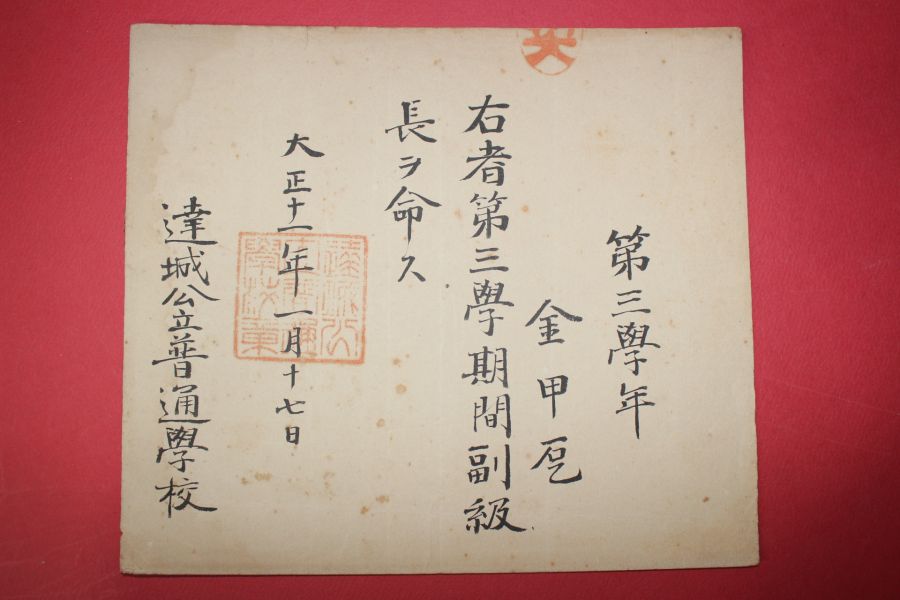 第三學年
金甲乭
右者第三學期間副級
長ヲ命ス
大正十一年一月十七日
達城公立普通學校